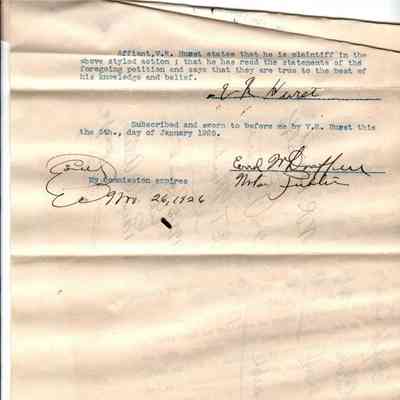 Affiant,V.R. Hurst states that he is plaintiff in the
above styled action ; that he has read the statements of the
foregoing petition and says that they are true to the best of
his knowledge and belief.
V R Hurst
Subscribed and sworn to before me by V.R. Hurst this
the 5th., day of January 1925.
My Commission expires
Nov 26, 1926